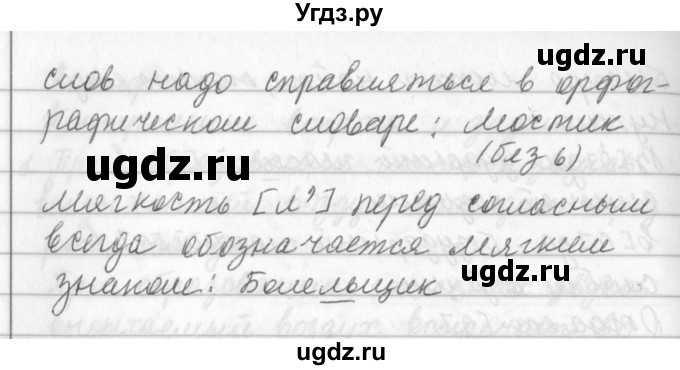 Угдз.ру
слов надо справляться в орфог-
рафическом словаре: мостик
(без ь)
мягкость [л'] перед согласным
всегда обозначается мягким
знаком: Болельщик
ugdz.ru
ugdz.ru
ugdz.ru
ugdz.ru
ugdz.ru